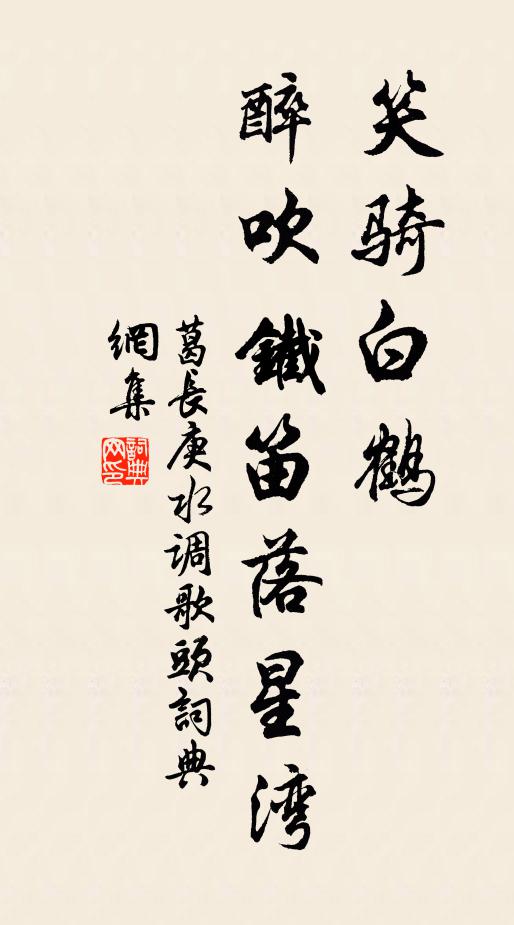 笑骑白鹤
醉吹鐵笛落星湾
葛長庚水调歌頭詞典
網集
詞典网印